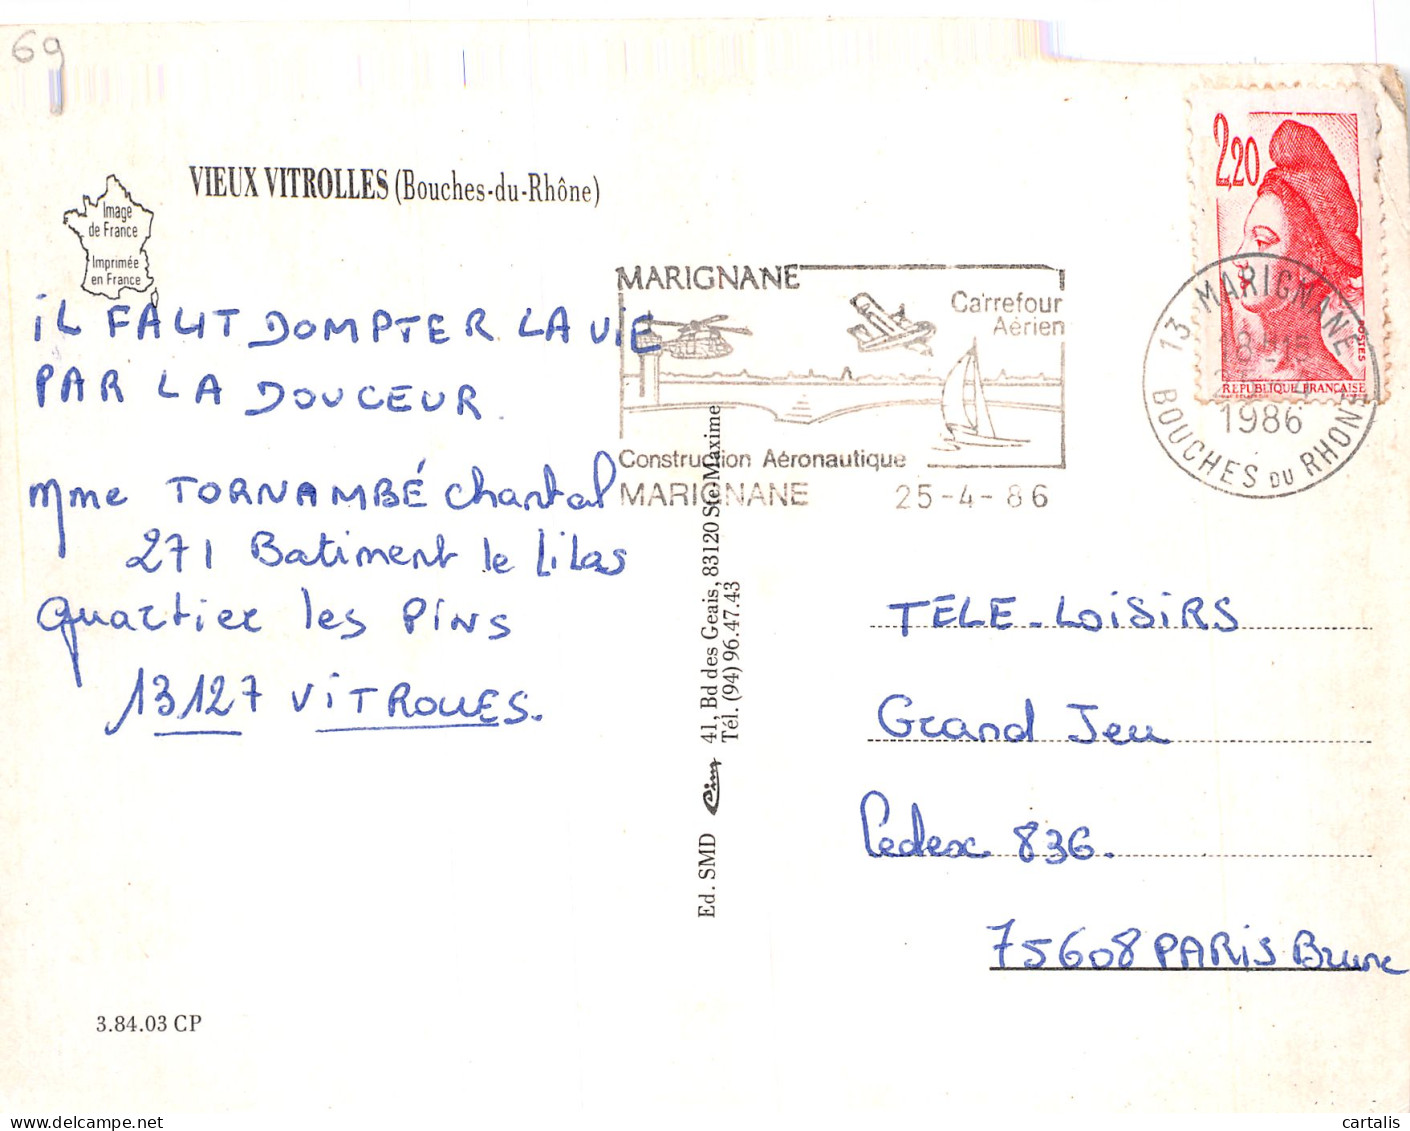 69
VIEUX VITROLLES (Bouches-du-Rhône)
Image
de France
Imprimée
en France
iL FAUT DOMPTER LA ViE
PAR LA DOUCEUR.
Mme TORNAMBÉ Chantal
271 Batiment le Lilas
Quartier les Pins
13127 ViTROLLES.
3.84.03 CP
Ed. SMD
41, Bd des Geais, 83120 Ste Maxime
Tél. (94) 96.47.43
MARIGNANE
Carrefour
Aérien
Construction Aéronautique
MARIGNANE 25-4-86
2,20
POSTES
REPUBLIQUE FRANÇAISE
13 MARIGNANE
1986
BOUCHES DU RHONE
TELE-LOiSiRS
Grand Jeu
Cedex 836.
75608 PARiS Brune
cartalis